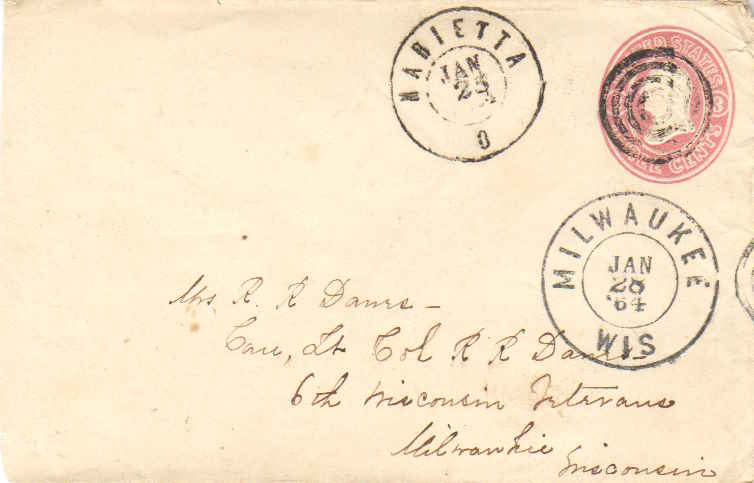 MARIETTA
JAN
25
O
UNITED STATES
THREE CENTS
MILWAUKEE
JAN
28
'64
WIS
Mrs R. R Dawes -
Care, Lt Col R R Dawes -
6th Wisconsin Veterans
Milwaukie
Wisconsin